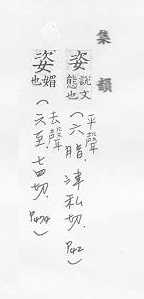 集韻
姿 說文態也 (平聲 六脂，津私切. P42)
姿 媚也 (去聲 六至，七四切. P474)